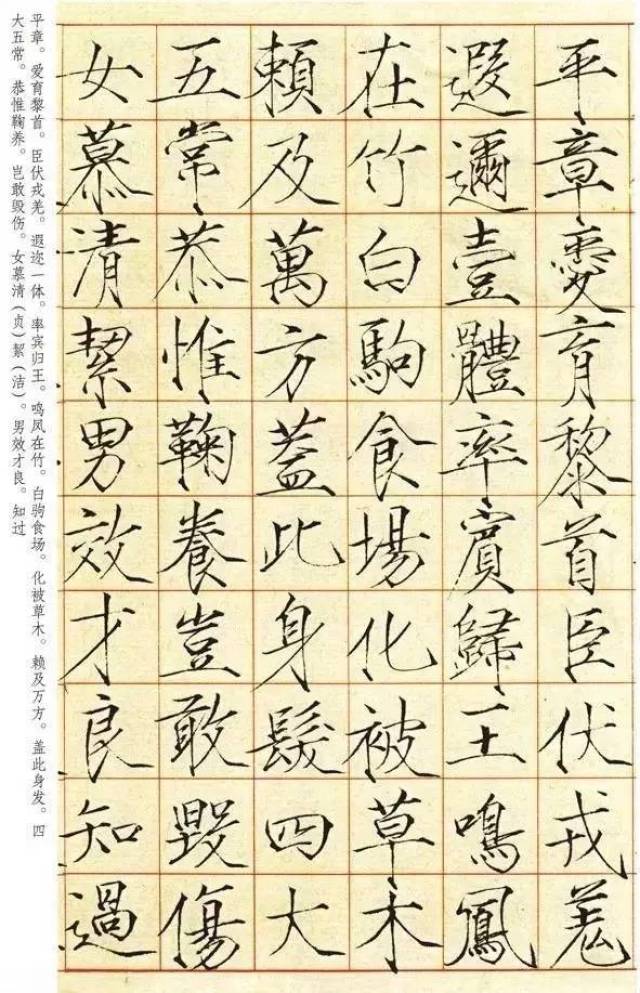 平章愛育黎首臣伏戎羌
遐邇壹體率賓歸王鳴鳳
在竹白駒食場化被草木
賴及萬方蓋此身髮四大
五常恭惟鞠養豈敢毀傷
女慕清絜男效才良知過
平章。爱育黎首。臣伏戎羌。遐迩一体。率宾归王。鸣凤在竹。白驹食场。化被草木。赖及万方。盖此身发。四
大五常。恭惟鞠养。岂敢毁伤。女慕清（贞）絜（洁）。男效才良。知过